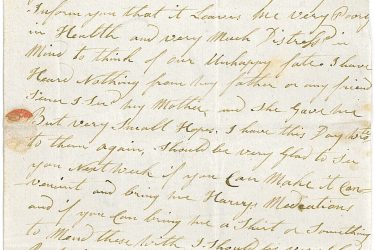 Inform you that it Leaves me very Poorly
in Health and very Much Distress in
Mind to think of our Unhappy fate I have
Heard Nothing from my father or any friend
Since I see my Mother and She Gave me
But very Small Hopes. I have this Day
to them again, Should be very Glad to See
you Next week if you Can Make it Con
venient and bring me Harveys Medations
and if you Can bring me a Shirt or Something
to Mend these with I Should be